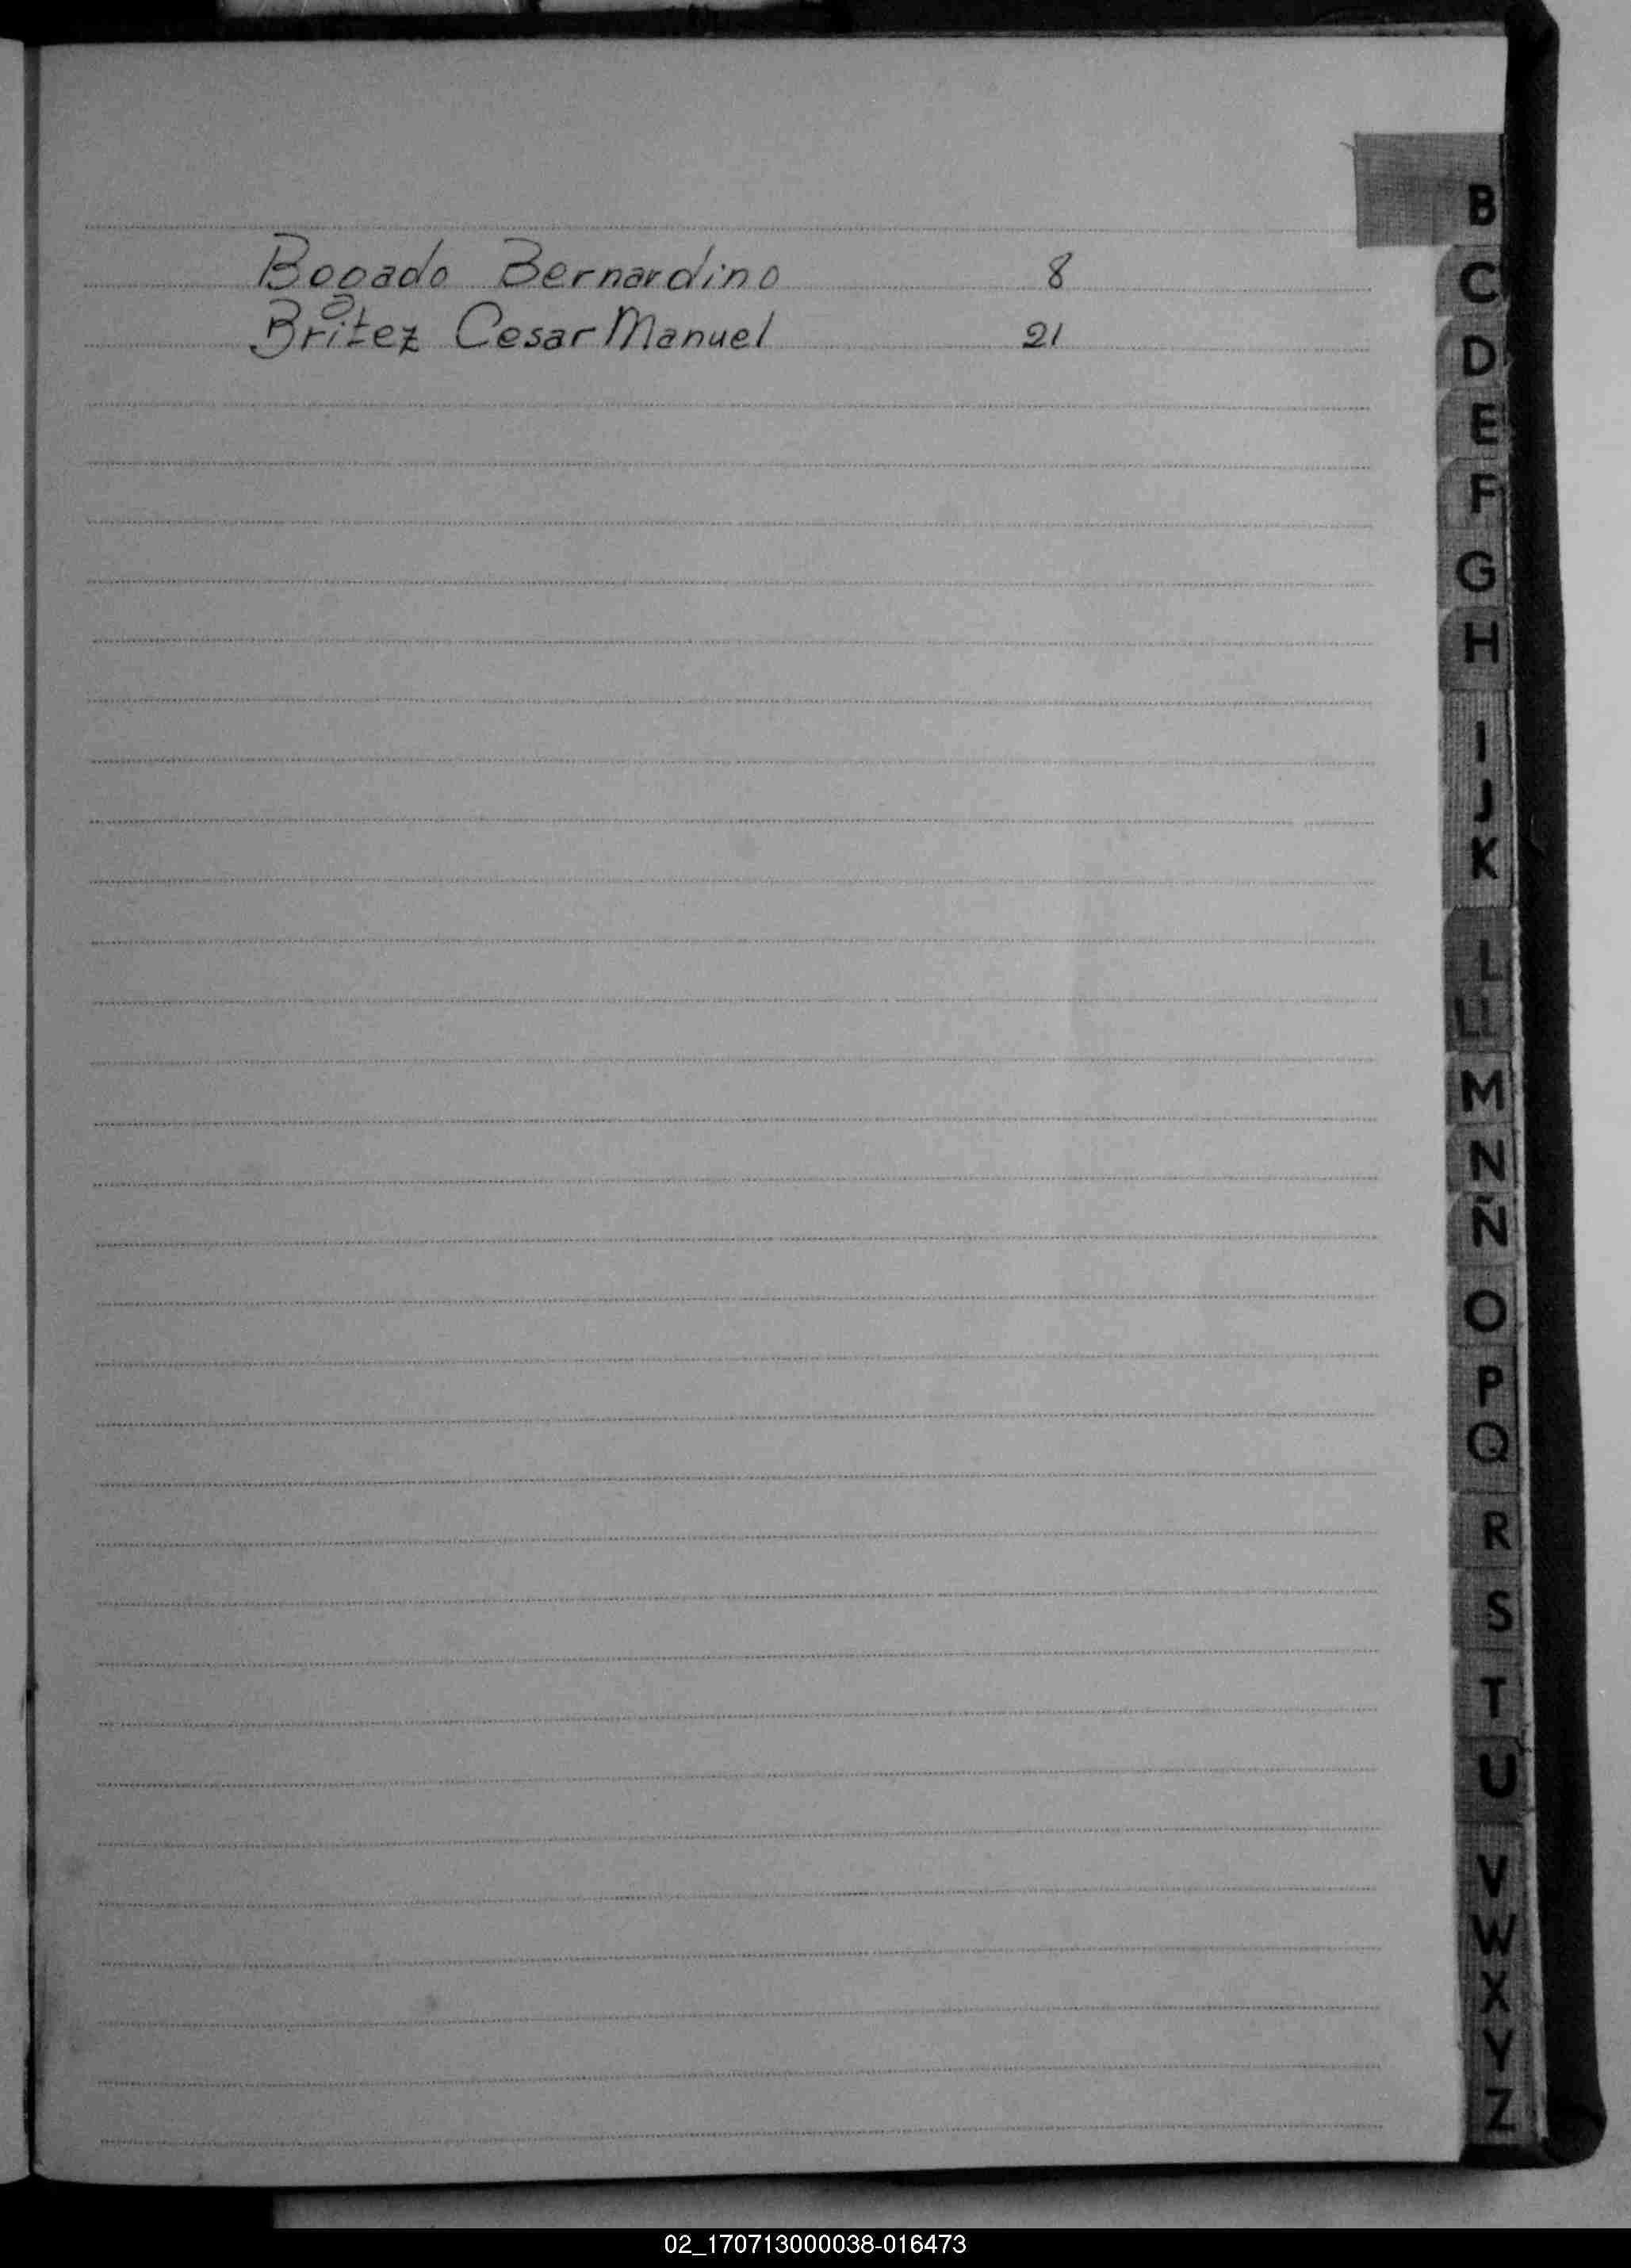 B
Bogado Bernardino 8
Britez Cesar Manuel 21
C
D
E
F
G
H
I
J
K
L
LL
M
N
Ñ
O
P
Q
R
S
T
U
V
W
X
Y
Z
02_170713000038-016473